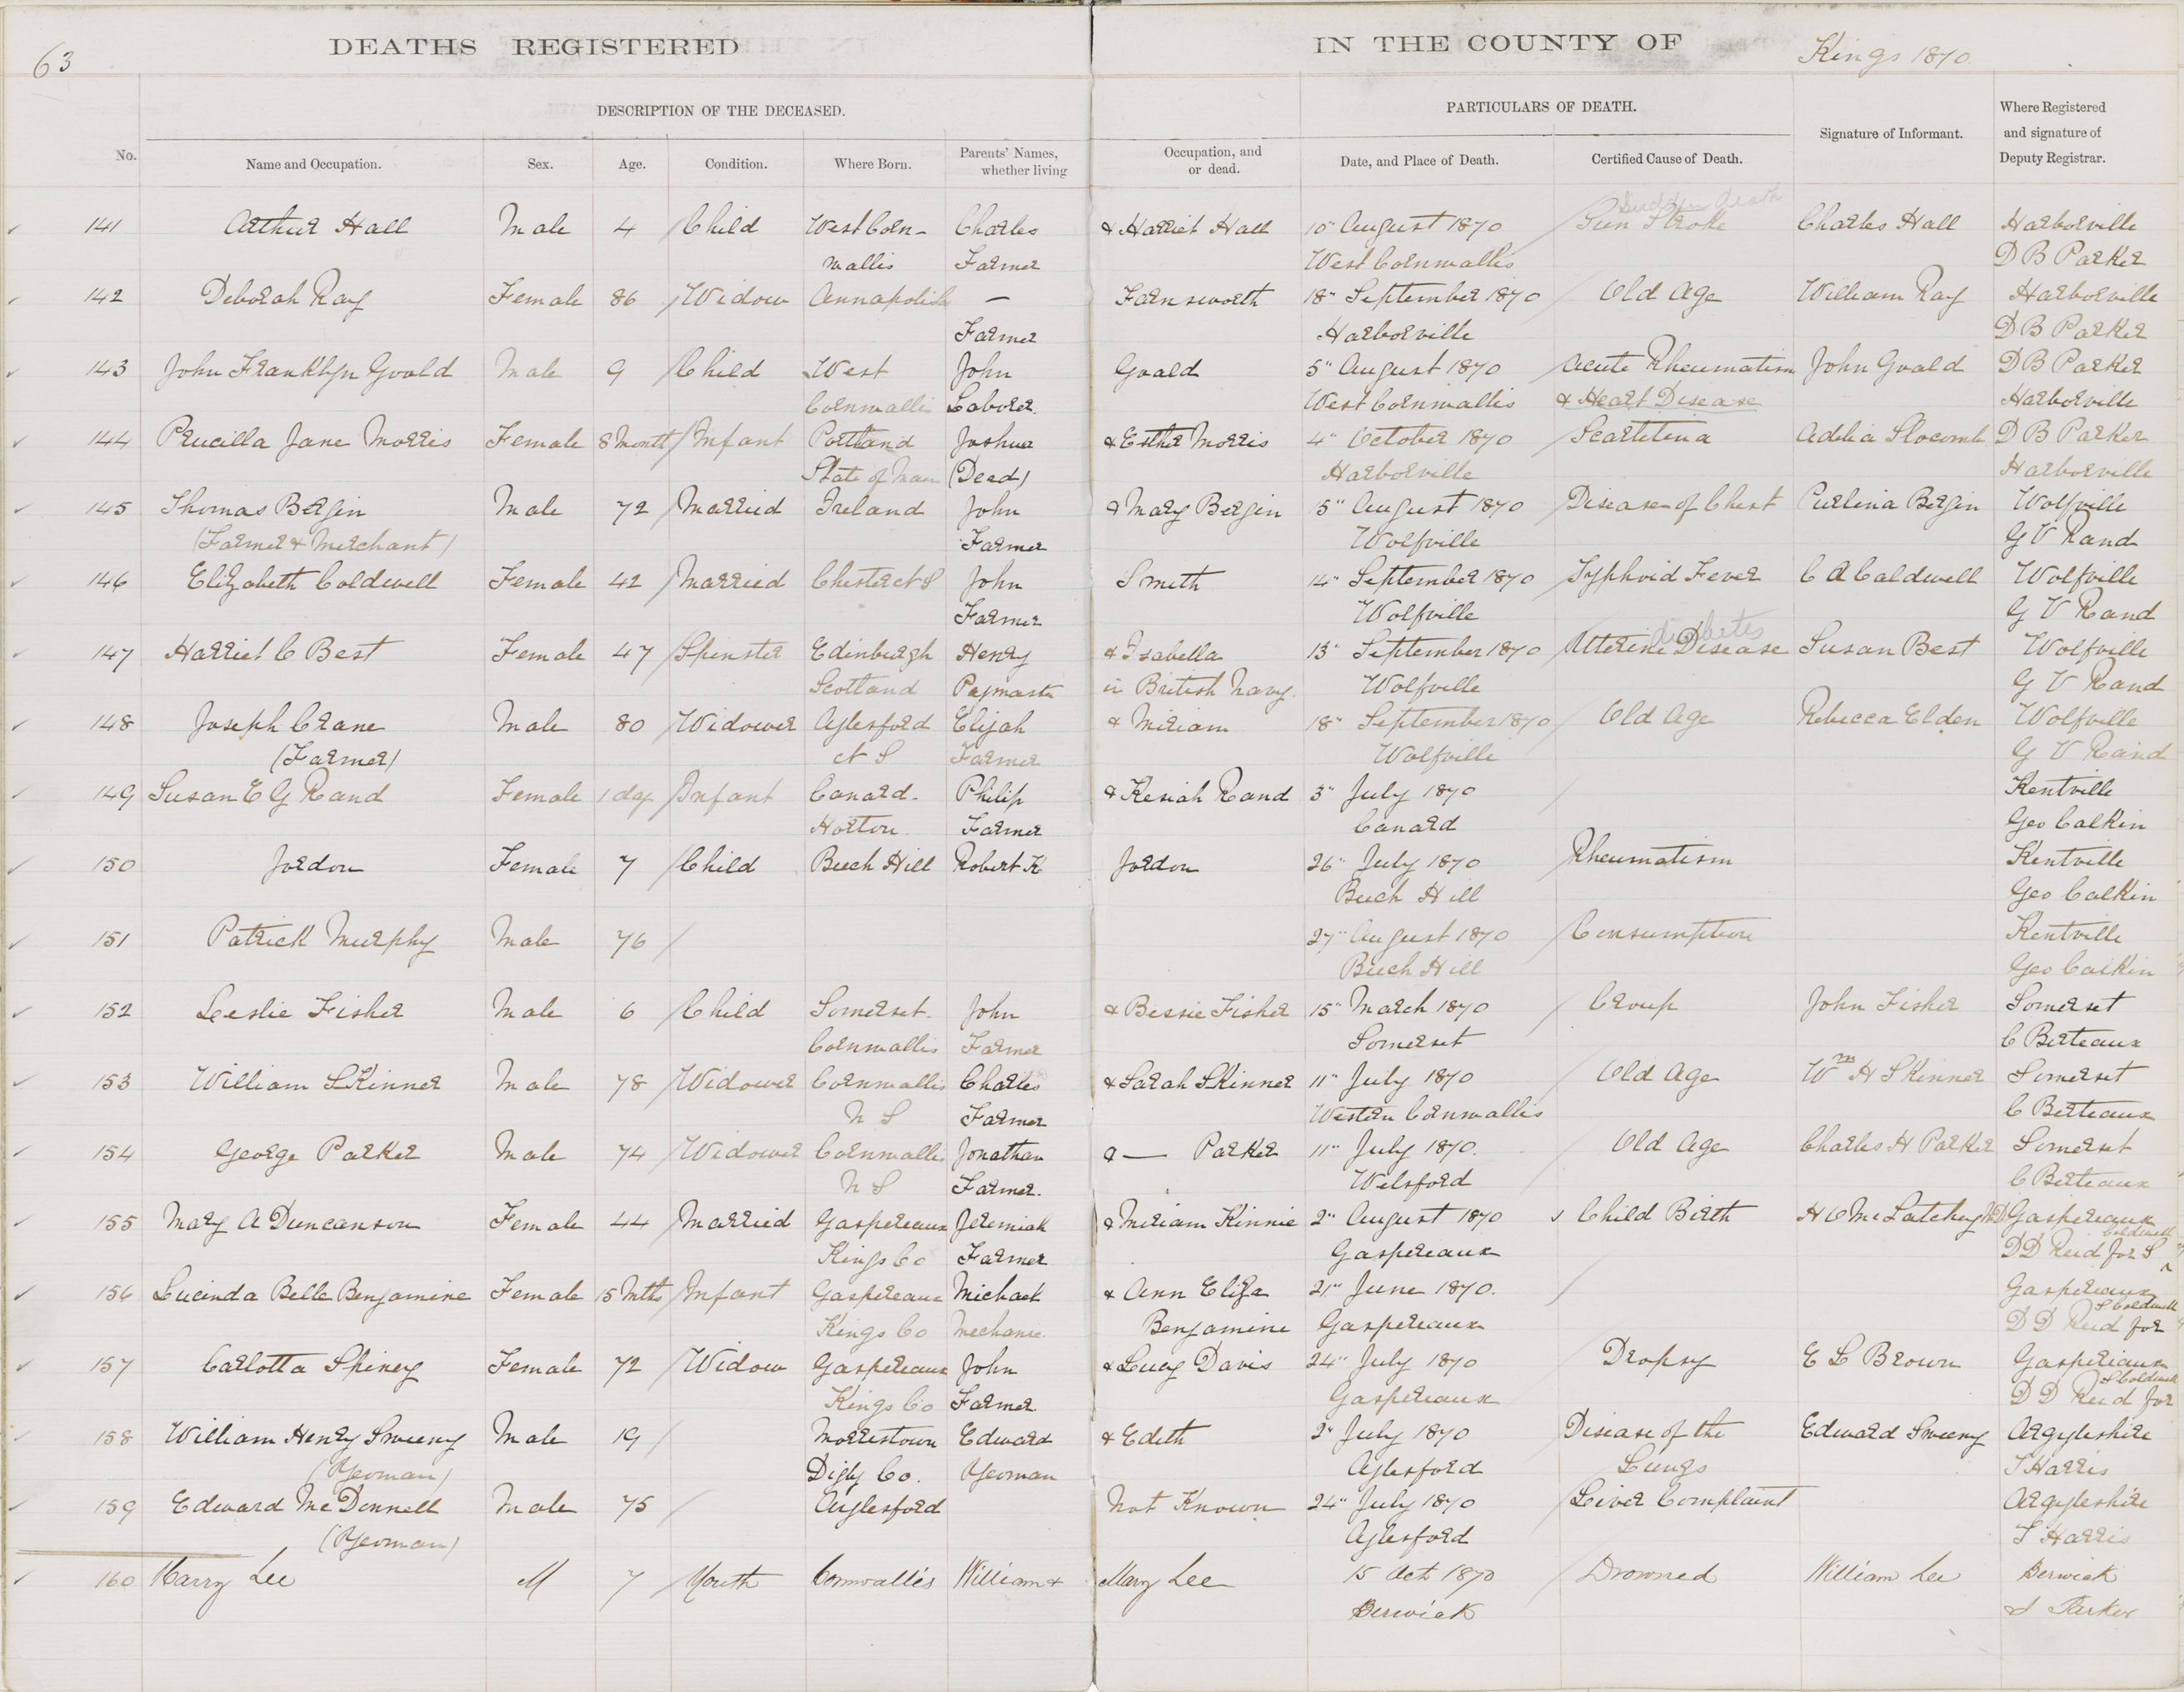 63 DEATHS REGISTERED IN THE COUNTY OF Kings 1870.
DESCRIPTION OF THE DECEASED. PARTICULARS OF DEATH. Where Registered
Signature of Informant. and signature of
No. Name and Occupation. Sex. Age. Condition. Where Born. Parents' Names, whether living Occupation, and or dead. Date, and Place of Death. Certified Cause of Death. Deputy Registrar.
Sudden death
141 Arthur Hall Male 4 Child West Corn- Charles & Harriet Hall 10" August 1870 Sun Stroke Charles Hall Harborville
wallis Farmer West Cornwallis D B Parker
142 Deborah Ray Female 86 Widow Annapolis — Farnsworth 18" September 1870 Old Age William Ray Harborville
Farmer Harborville D B Parker
143 John Franklyn Goold Male 9 Child West John Goold 5" August 1870 Acute Rheumatism John Goold D B Parker
Cornwallis Laborer. West Cornwallis & Heart Disease Harborville
144 Prucilla Jane Morris Female 8 Month Infant Portland Joshua & Esther Morris 4" October 1870 Scarletina Adelia Slocomb D B Parker
State of Main (Dead) Harborville Harborville
145 Thomas Bergin Male 72 Married Ireland John & Mary Bergin 15" August 1870 Disease of Chest Purlina Bergin Wolfville
(Farmer & Merchant) Farmer Wolfville G V Rand
146 Elizabeth Coldwell Female 42 Married Chester N S John Smith 14" September 1870 Typhoid Fever C A Caldwell Wolfville
Farmer Wolfville G V Rand
diabetes
147 Harriet C Best Female 47 Spinster Edinburgh Henry & Isabella 13" September 1870 Utterine Disease Susan Best Wolfville
Scotland Paymaster in British Navy. Wolfville G V Rand
148 Joseph Crane Male 80 Widower Aylesford Elijah & Miriam 18" September 1870 Old Age Rebecca Elden Wolfville
(Farmer) N S Farmer Wolfville G V Rand
149 Susan E G Rand Female 1 day Infant Canard. Philip & Kesiah Rand 3" July 1870 Kentville
Horton. Farmer Canard Geo Calkin
150 Jordon Female 7 Child Beech Hill Robert K Jordon 26" July 1870 Rheumatism Kentville
Beech Hill Geo Calkin
151 Patrick Murphy Male 76 27" August 1870 Consumption Kentville
Beech Hill Geo Calkin
152 Leslie Fisher Male 6 Child Somerset. John & Bessie Fisher 15" March 1870 Croup John Fisher Somerset
Cornwallis Farmer Somerset C Berteaux
153 William Skinner Male 78 Widower Cornwallis Charles & Sarah Skinner 11" July 1870 Old Age Wm H Skinner Somerset
N S Farmer Western Cornwallis C Berteaux
154 George Parker Male 74 Widower Cornwallis Jonathan & — Parker 11" July 1870. Old Age Charles H Parker Somerset
N S Farmer. Welsford C Berteaux
155 Mary A Duncanson Female 44 Married Gaspereaux Jeremiah & Miriam Kinnie 2" August 1870 Child Birth H C McLatchey MD Gaspereaux
Kings Co Farmer Gaspereaux DD Reid for S Coldwell
156 Lucinda Belle Benjamine Female 15 Mths Infant Gaspereaux Michael & Ann Eliza 21" June 1870. Gaspereaux
Kings Co Mechanic Benjamine Gaspereaux D D Reid for S Coldwell
157 Carlotta Spiney Female 72 Widow Gaspereaux John & Lucy Davis 24" July 1870 Dropsy E L Brown Gaspereaux
Kings Co Farmer Gaspereaux D D Reid for S Coldwell
158 William Henry Sweeny Male 19 Morristown Edward & Edith 2" July 1870 Disease of the Edward Sweeny Argyleshire
(Yeoman) Digby Co. Yeoman Aylesford Lungs T Harris
159 Edward McDonnell Male 75 Aylesford Not Known 24" July 1870 Liver Complaint Argyleshire
(Yeoman) Aylesford T Harris
160 Harry Lee M 7 Youth Cornwallis William & Mary Lee 15 Oct 1870 Drowned William Lee Berwick
Berwick S Parker